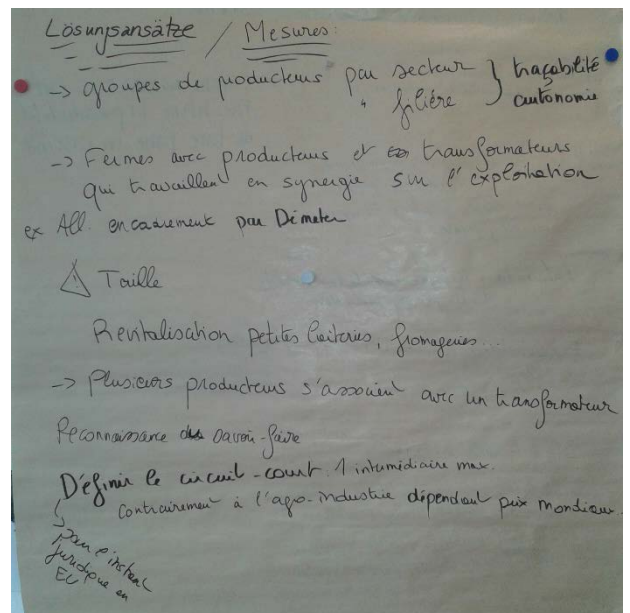 Lösungsansätze / Mesures:
-> groupes de producteurs par secteur } traçabilité
" filiére } autonomie
-> Fermes avec producteurs et transformateurs
qui travaillent en synergie sur l'exploitation
ex All. encadrement par Démeter
⚠ Taille
Revitalisation petites laiteries, fromageries...
-> Plusieurs producteurs s'associent avec un transformateur
Reconnaissance du savoir-faire
Définir le circuit-court: 1 intermédiaire max.
contrairement à l'ago-industrie dépendant prix mondiaux.
-> pour l'instant
juridique en
EU